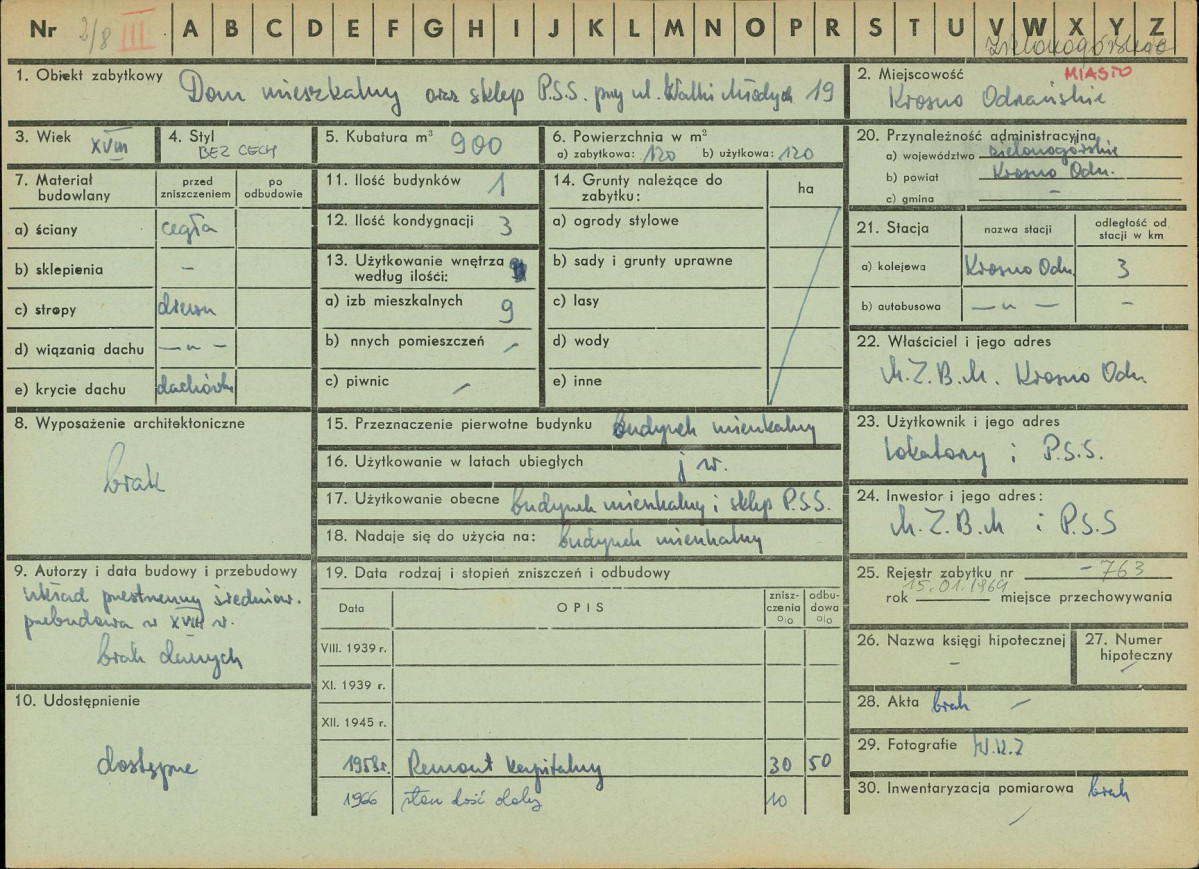 Nr 2/8 III A B C D E F G H I J K L M N O P R S T U V W X Y Z
Zielonogórskie
1. Obiekt zabytkowy Dom mieszkalny oraz sklep P.S.S. przy ul. Walki Młodych 19
2. Miejscowość MIASTO
Krosno Odrzańskie
3. Wiek XVIII
4. Styl BEZ CECH
5. Kubatura m³ 900
6. Powierzchnia w m²
a) zabytkowa: 120 b) użytkowa: 120
20. Przynależność administracyjna
a) województwo zielonogórskie
b) powiat Krosno Odrz.
c) gmina –
7. Materiał budowlany
przed zniszczeniem
po odbudowie
a) ściany cegła
b) sklepienia –
c) stropy drewn
d) wiązania dachu — " —
e) krycie dachu dachówk
11. Ilość budynków 1
12. Ilość kondygnacji 3
13. Użytkowanie wnętrza
według ilości:
a) izb mieszkalnych 9
b) nnych pomieszczeń –
c) piwnic –
14. Grunty należące do
zabytku:
ha
a) ogrody stylowe
b) sady i grunty uprawne
c) lasy
d) wody
e) inne
21. Stacja
nazwa stacji
odległość od
stacji w km
a) kolejowa Krosno Odrz. 3
b) autobusowa — " — –
22. Właściciel i jego adres
M.Z.B.M. Krosno Odrz.
8. Wyposażenie architektoniczne
brak
15. Przeznaczenie pierwotne budynku budynek mieszkalny
16. Użytkowanie w latach ubiegłych j w.
17. Użytkowanie obecne budynek mieszkalny i sklep P.S.S.
18. Nadaje się do użycia na: budynek mieszkalny
23. Użytkownik i jego adres
lokatorzy i P.S.S.
24. Inwestor i jego adres:
M.Z.B.M i P.S.S
9. Autorzy i data budowy i przebudowy
układ przestrzenny średniow.
przebudowa w XVIII w.
brak danych
19. Data rodzaj i stopień zniszczeń i odbudowy
Data
OPIS
znisz-
czenia
o/o
odbu-
dowa
o/o
VIII. 1939 r.
XI. 1939 r.
XII. 1945 r.
1958r. Remont kapitalny 30 50
1966 stan dość dobry 10
25. Rejestr zabytku nr – 763
rok 15.01.1969 miejsce przechowywania
26. Nazwa księgi hipotecznej –
27. Numer
hipoteczny –
10. Udostępnienie
dostępne
28. Akta brak –
29. Fotografie W.K.Z
30. Inwentaryzacja pomiarowa brak
–